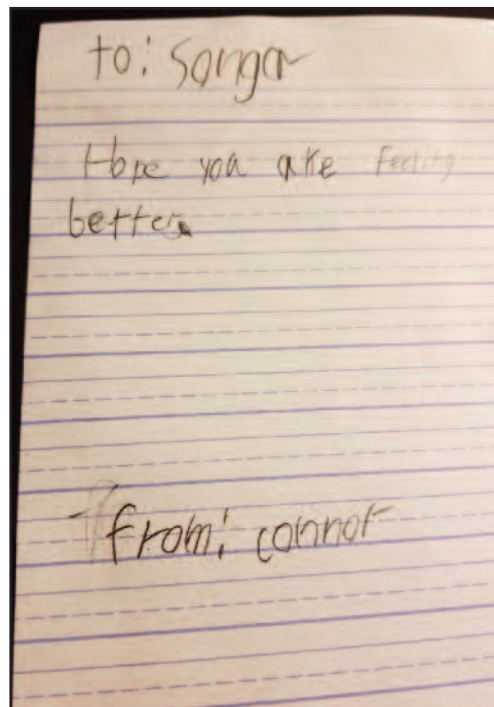 to: Sangar
Hope you are Feeling
better.
from: connor